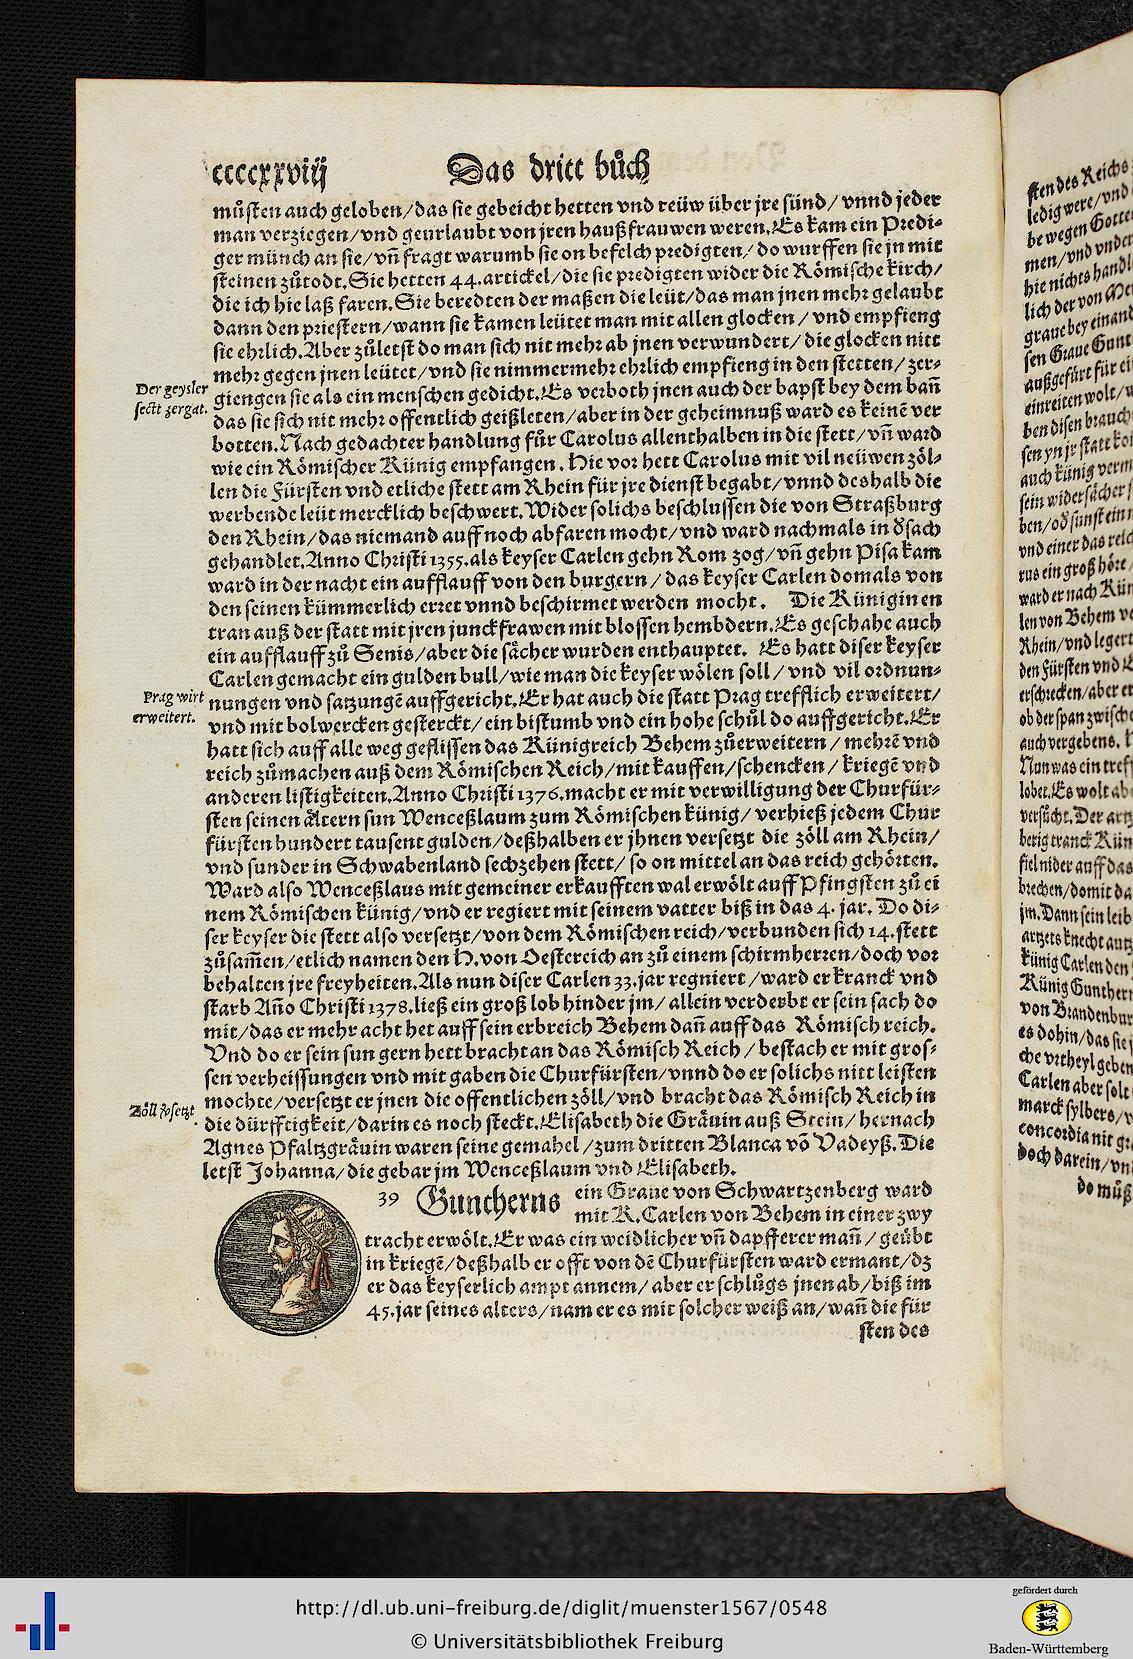 ccccxxviij Das dritt bůch
můsten auch geloben/das sie gebeicht hetten vnd reüw über jre sünd/vnnd jeder
man verziegen/vnd geurlaubt von jren haußfrauwen weren.Es kam ein Predi-
ger münch an sie/vñ fragt warumb sie on befelch predigten/do wurffen sie jn mit
steinen zůtodt.Sie hetten 44.artickel/die sie predigten wider die Römische kirch/
die ich hie laß faren.Sie beredten der maßen die leüt/das man jnen mehr gelaubt
dann den priestern/wann sie kamen leütet man mit allen glocken/vnd empfieng
sie ehrlich.Aber zůletst do man sich nit mehr ab jnen verwundert/die glocken nitt
mehr gegen jnen leütet/vnd sie nimmermehr ehrlich empfieng in den stetten/zer-
Der geysler
sectt zergat.
giengen sie als ein menschen gedicht.Es verboth jnen auch der bapst bey dem bañ
das sie sich nit mehr offentlich geißleten/aber in der geheimnuß ward es keinē ver
botten.Nach gedachter handlung fůr Carolus allenthalben in die stett/vñ ward
wie ein Römischer Künig empfangen. Hie vor hett Carolus mit vil neüwen zöl-
len die Fürsten vnd etliche stett am Rhein für jre dienst begabt/vnnd deshalb die
werbende leüt mercklich beschwert.Wider solichs beschlussen die von Straßburg
den Rhein/das niemand auff noch abfaren mocht/vnd ward nachmals in d̓ sach
gehandlet.Anno Christi 1355.als keyser Carlen gehn Rom zog/vñ gehn Pisa kam
ward in der nacht ein aufflauff von den burgern/das keyser Carlen domals von
den seinen kümmerlich erret vnnd beschirmet werden mocht. Die Künigin en
tran auß der statt mit jren junckfrawen mit blossen hembdern.Es geschahe auch
ein aufflauff zů Senis/aber die sächer wurden enthauptet. Es hatt diser keyser
Carlen gemacht ein gulden bull/wie man die keyser wölen soll/vnd vil ordnun-
Prag wirt
erweitert.
nungen vnd satzungē auffgericht.Er hat auch die statt Prag trefflich erweitert/
vnd mit bolwercken gesterckt/ein bistumb vnd ein hohe schůl do auffgericht.Er
hatt sich auff alle weg geflissen das Künigreich Behem zůerweitern/mehrē vnd
reich zůmachen auß dem Römischen Reich/mit kauffen/schencken/kriegē vnd
anderen listigkeiten.Anno Christi 1376.macht er mit verwilligung der Churfür-
sten seinen åltern sun Wenceßlaum zum Römischen künig/verhieß jedem Chur
fürsten hundert tausent gulden/deßhalben er jhnen versetzt die zöll am Rhein/
vnd sunder in Schwabenland sechzehen stett/so on mittel an das reich gehörten.
Ward also Wenceßlaus mit gemeiner erkaufften wal erwölt auff Pfingsten zů ei
nem Römischen künig/vnd er regiert mit seinem vatter biß in das 4. jar. Do di-
ser keyser die stett also versetzt/von dem Römischen reich/verbunden sich 14.stett
zůsam̄en/etlich namen den H.von Oestereich an zů einem schirmherren/doch vor
behalten jre freyheiten.Als nun diser Carlen 33.jar regniert/ward er kranck vnd
starb Año Christi 1378.ließ ein groß lob hinder jm/allein verderbt er sein sach do
mit/das er mehr acht het auff sein erbreich Behem dañ auff das Römisch reich.
Vnd do er sein sun gern hett bracht an das Römisch Reich/bestach er mit gros-
sen verheissungen vnd mit gaben die Churfürsten/vnnd do er solichs nitt leisten
Zöll v̓setzt
mochte/versetzt er jnen die offentlichen zöll/vnd bracht das Römisch Reich in
die dürfftigkeit/darin es noch steckt.Elisabeth die Gräuin auß Stein/hernach
Agnes Pfaltzgräuin waren seine gemahel/zum dritten Blanca vō Vadeyß.Die
letst Johanna/die gebar jm Wenceßlaum vnd Elisabeth.
39 Guntherus ein Graue von Schwartzenberg ward
mit K.Carlen von Behem in einer zwy
tracht erwölt.Er was ein weidlicher vñ dapfferer mañ/geübt
in kriegē/deßhalb er offt von dē Churfürsten ward ermant/dz
er das keyserlich ampt annem/aber er schlůgs jnen ab/biß im
45.jar seines alters/nam er es mit solcher weiß an/wañ die für
sten des
sten des Reichs
ledig were/vnd
be wegen Gottes
men/vnd vnder
hie nichts handl
lich der von Me
graue bey einand
sen Graue Gunt
außgefürt für ei
einreiten wolt/
ben disen brauch
sen yn jr statt
auch künig verm
sein widersächer
ben/od̓ sunst ein
vnd einer das reich
rus ein groß höre
ward er nach Kün
len von Behem
Rhein/vnd legert
den Fürsten vnd
erschrecken/aber er
ob der span zwische
auch vergebens.
Nun was ein treff
lobet.Es wolt ab
versůcht.Der artz
betig tranck Kün
fiel nider auff das
brechen/domit da
jm.Dann sein leib
artzets knecht
künig Carlen den
Künig Gunthern
von Brandenbur
es dohin/das sie
che vrtheyl geben
Carlen aber solt
marck sylbers/
concordia nit
doch darein/vn
do můß
http://dl.ub.uni-freiburg.de/diglit/muenster1567/0548
© Universitätsbibliothek Freiburg
gefördert durch
Baden-Württemberg